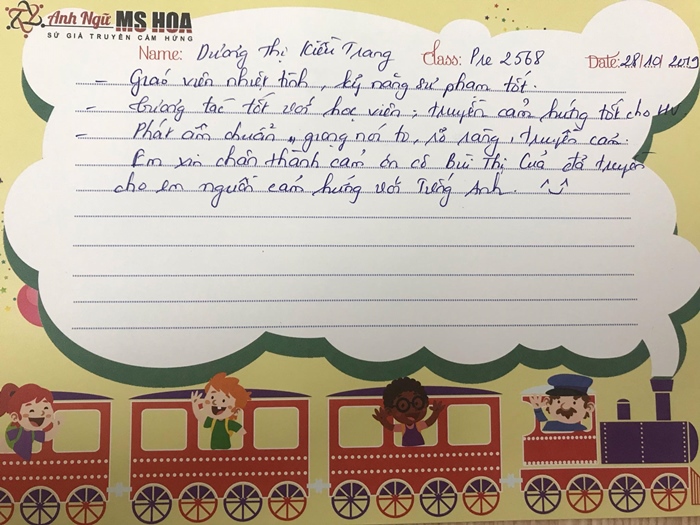 Anh Ngữ MS HOA
SỨ GIẢ TRUYỀN CẢM HỨNG
Name: Dương Thị Kiều Trang Class: Pre 2568 Date: 28/10/2019
- Giáo viên nhiệt tình, kỹ năng sư phạm tốt.
- tương tác tốt với học viên; truyền cảm hứng tốt cho HV
- Phát âm chuẩn, giọng nói to, rõ ràng, truyền cảm.
Em xin chân thành cảm ơn cô Bùi Thị Của đã truyền
cho em nguồn cảm hứng với Tiếng Anh. ^-^